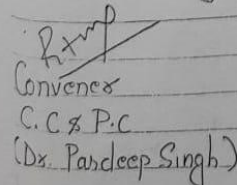 Convener
C.C & P.C
(Dr. Pardeep Singh)